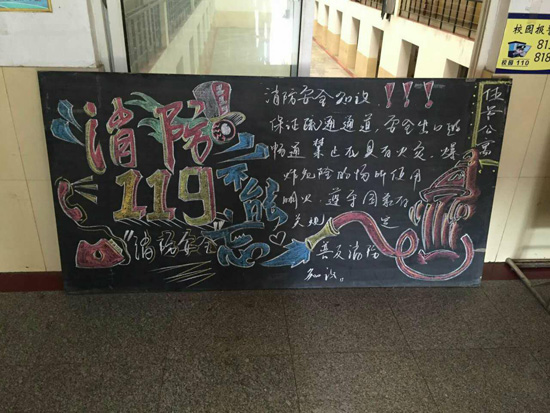 消防
119
不能忘
"消防安全"
消防安全知识!!!
保证疏通通道,安全出口畅
畅通禁止在具有火灾、爆
炸危险的场所使用
明火,遵守国家有
关规定
普及消防
知识。
校园报警
校园110